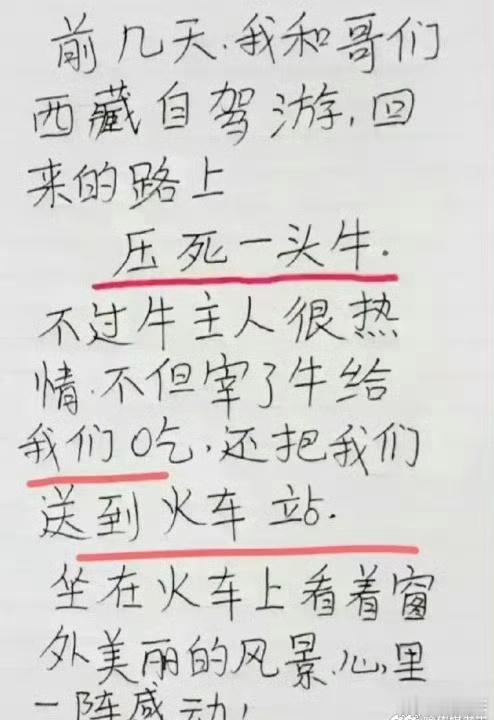 前几天.我和哥们
西藏自驾游,回
来的路上
压死一头牛.
不过牛主人很热
情.不但宰了牛给
我们吃,还把我们
送到火车站.
坐在火车上看着窗
外美丽的风景,心里
一阵感动!